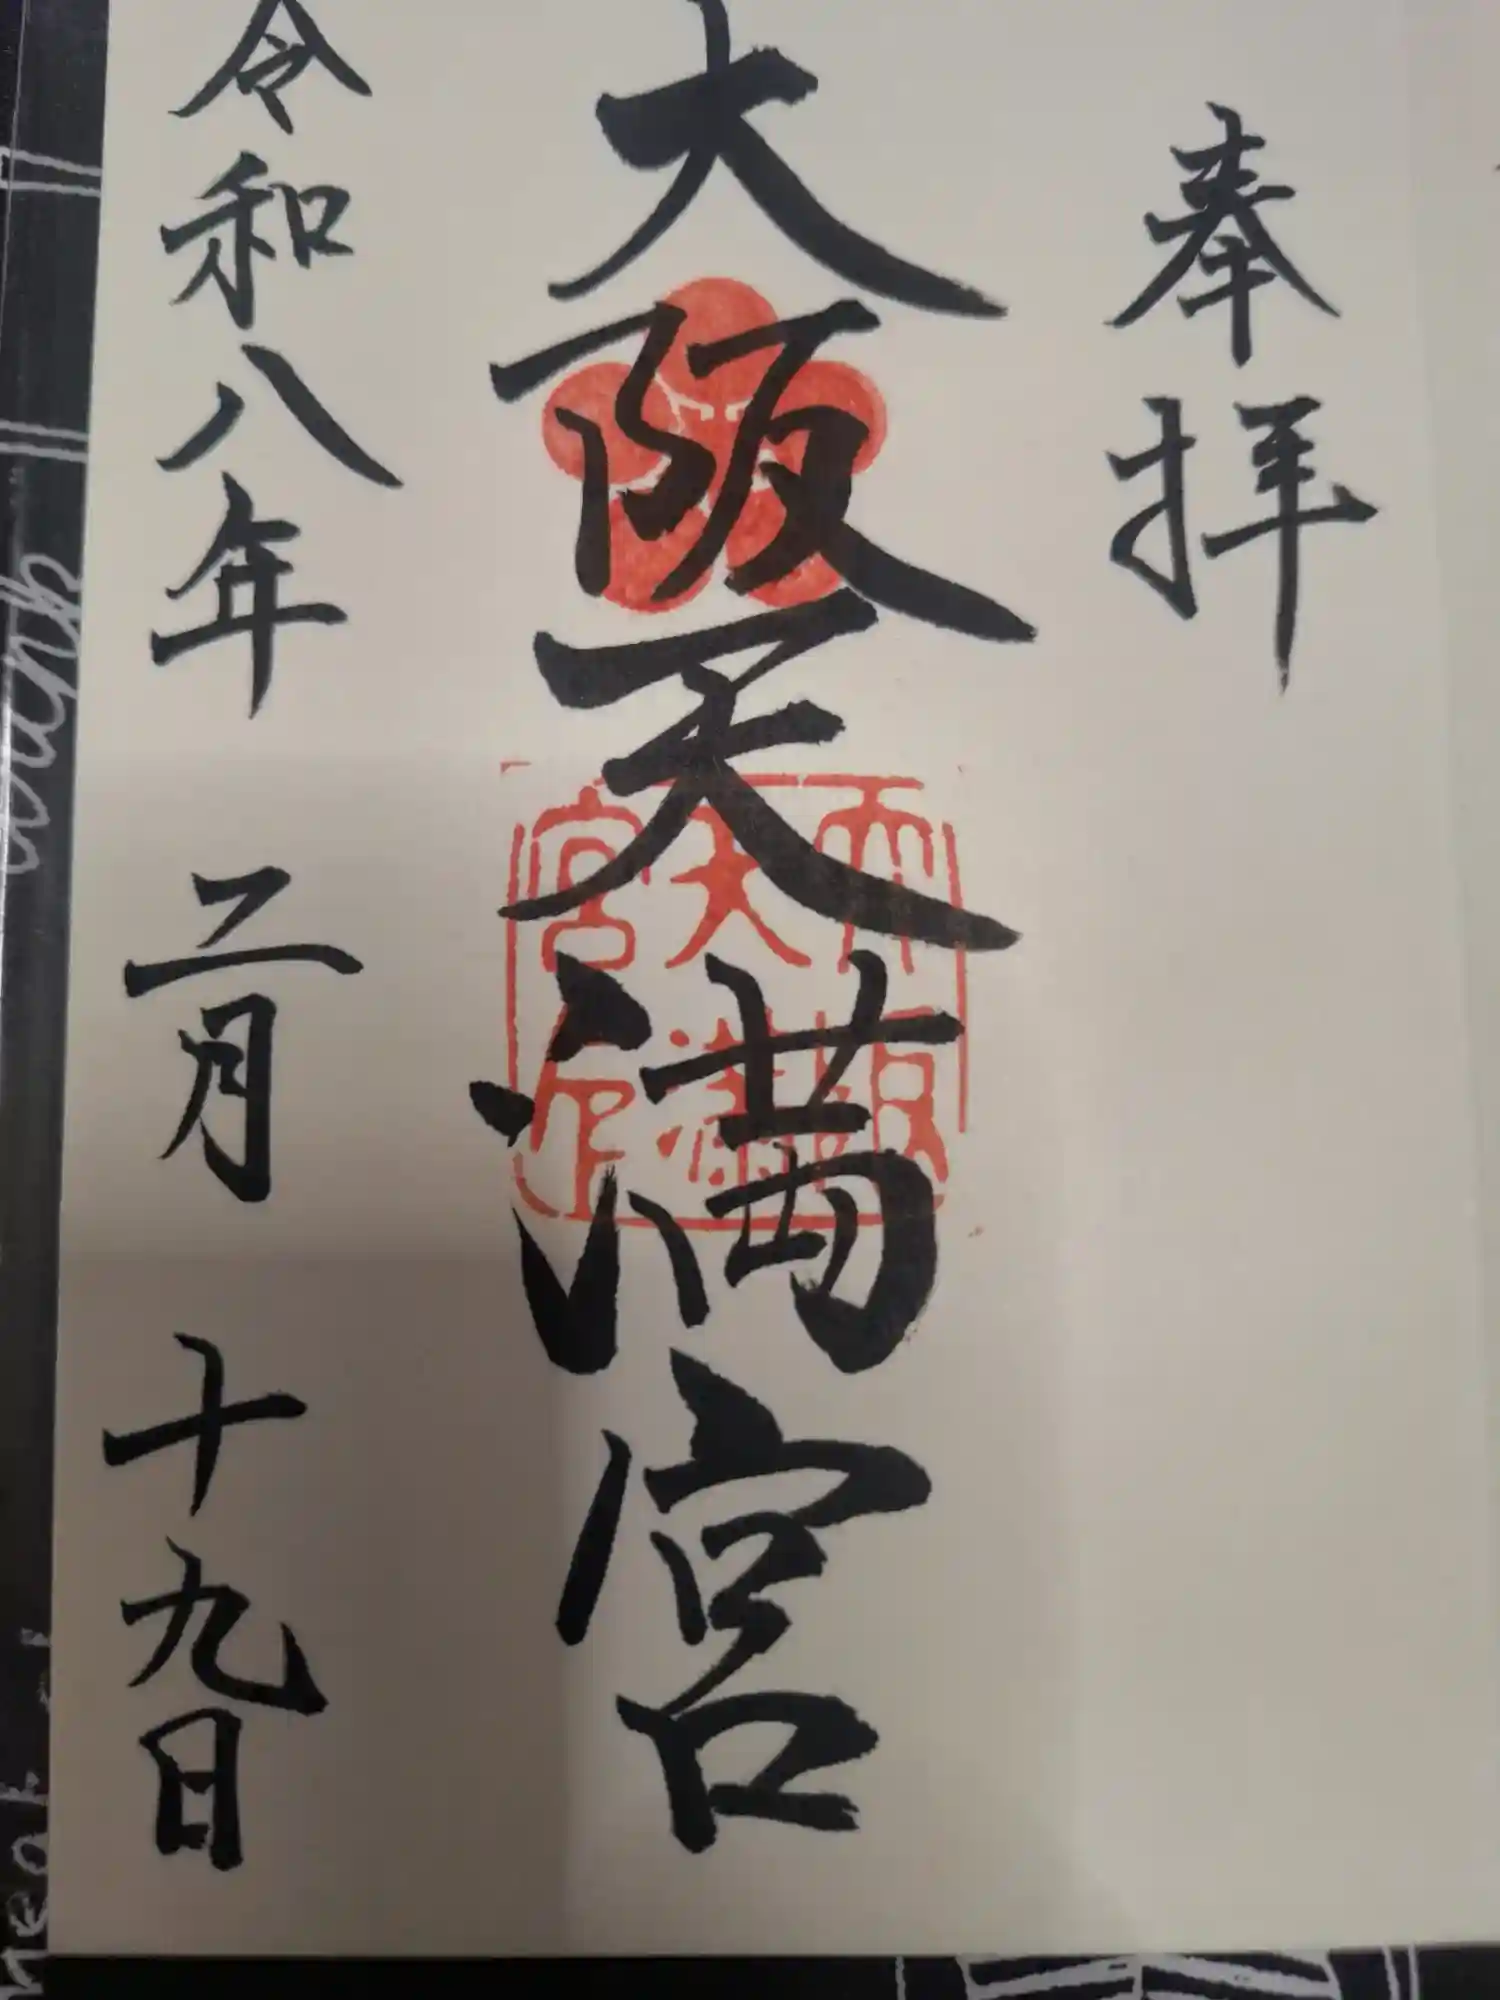 奉拝
大阪天満宮
大阪
天満
宮印
令和八年 二月 十九日